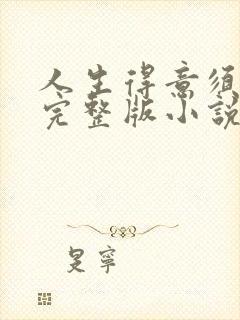 人生得意須
完整版小說
旻寧